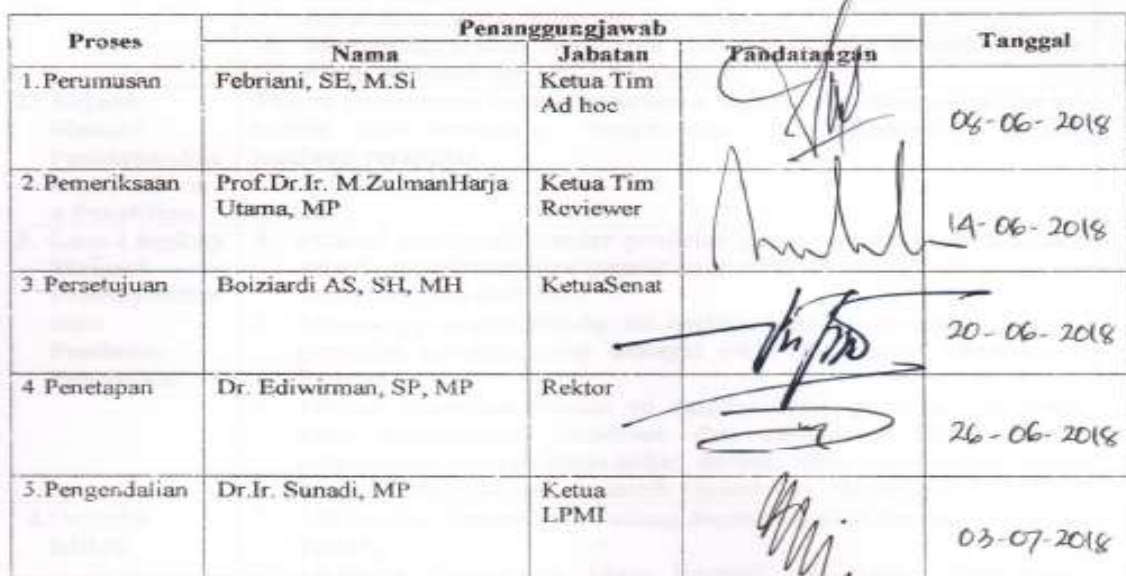 Proses Penanggungjawab Tanggal
Nama Jabatan Tandatangan
1.Perumusan Febriani, SE, M.Si Ketua Tim
Ad hoc
08-06-2018
2.Pemeriksaan Prof.Dr.Ir. M.ZulmanHarja Ketua Tim
Utama, MP Reviewer
14-06-2018
3.Persetujuan Boiziardi AS, SH, MH KetuaSenat
20-06-2018
4 Penetapan Dr. Ediwirman, SP, MP Rektor
26-06-2018
5.Pengendalian Dr.Ir. Sunadi, MP Ketua
LPMI
03-07-2018